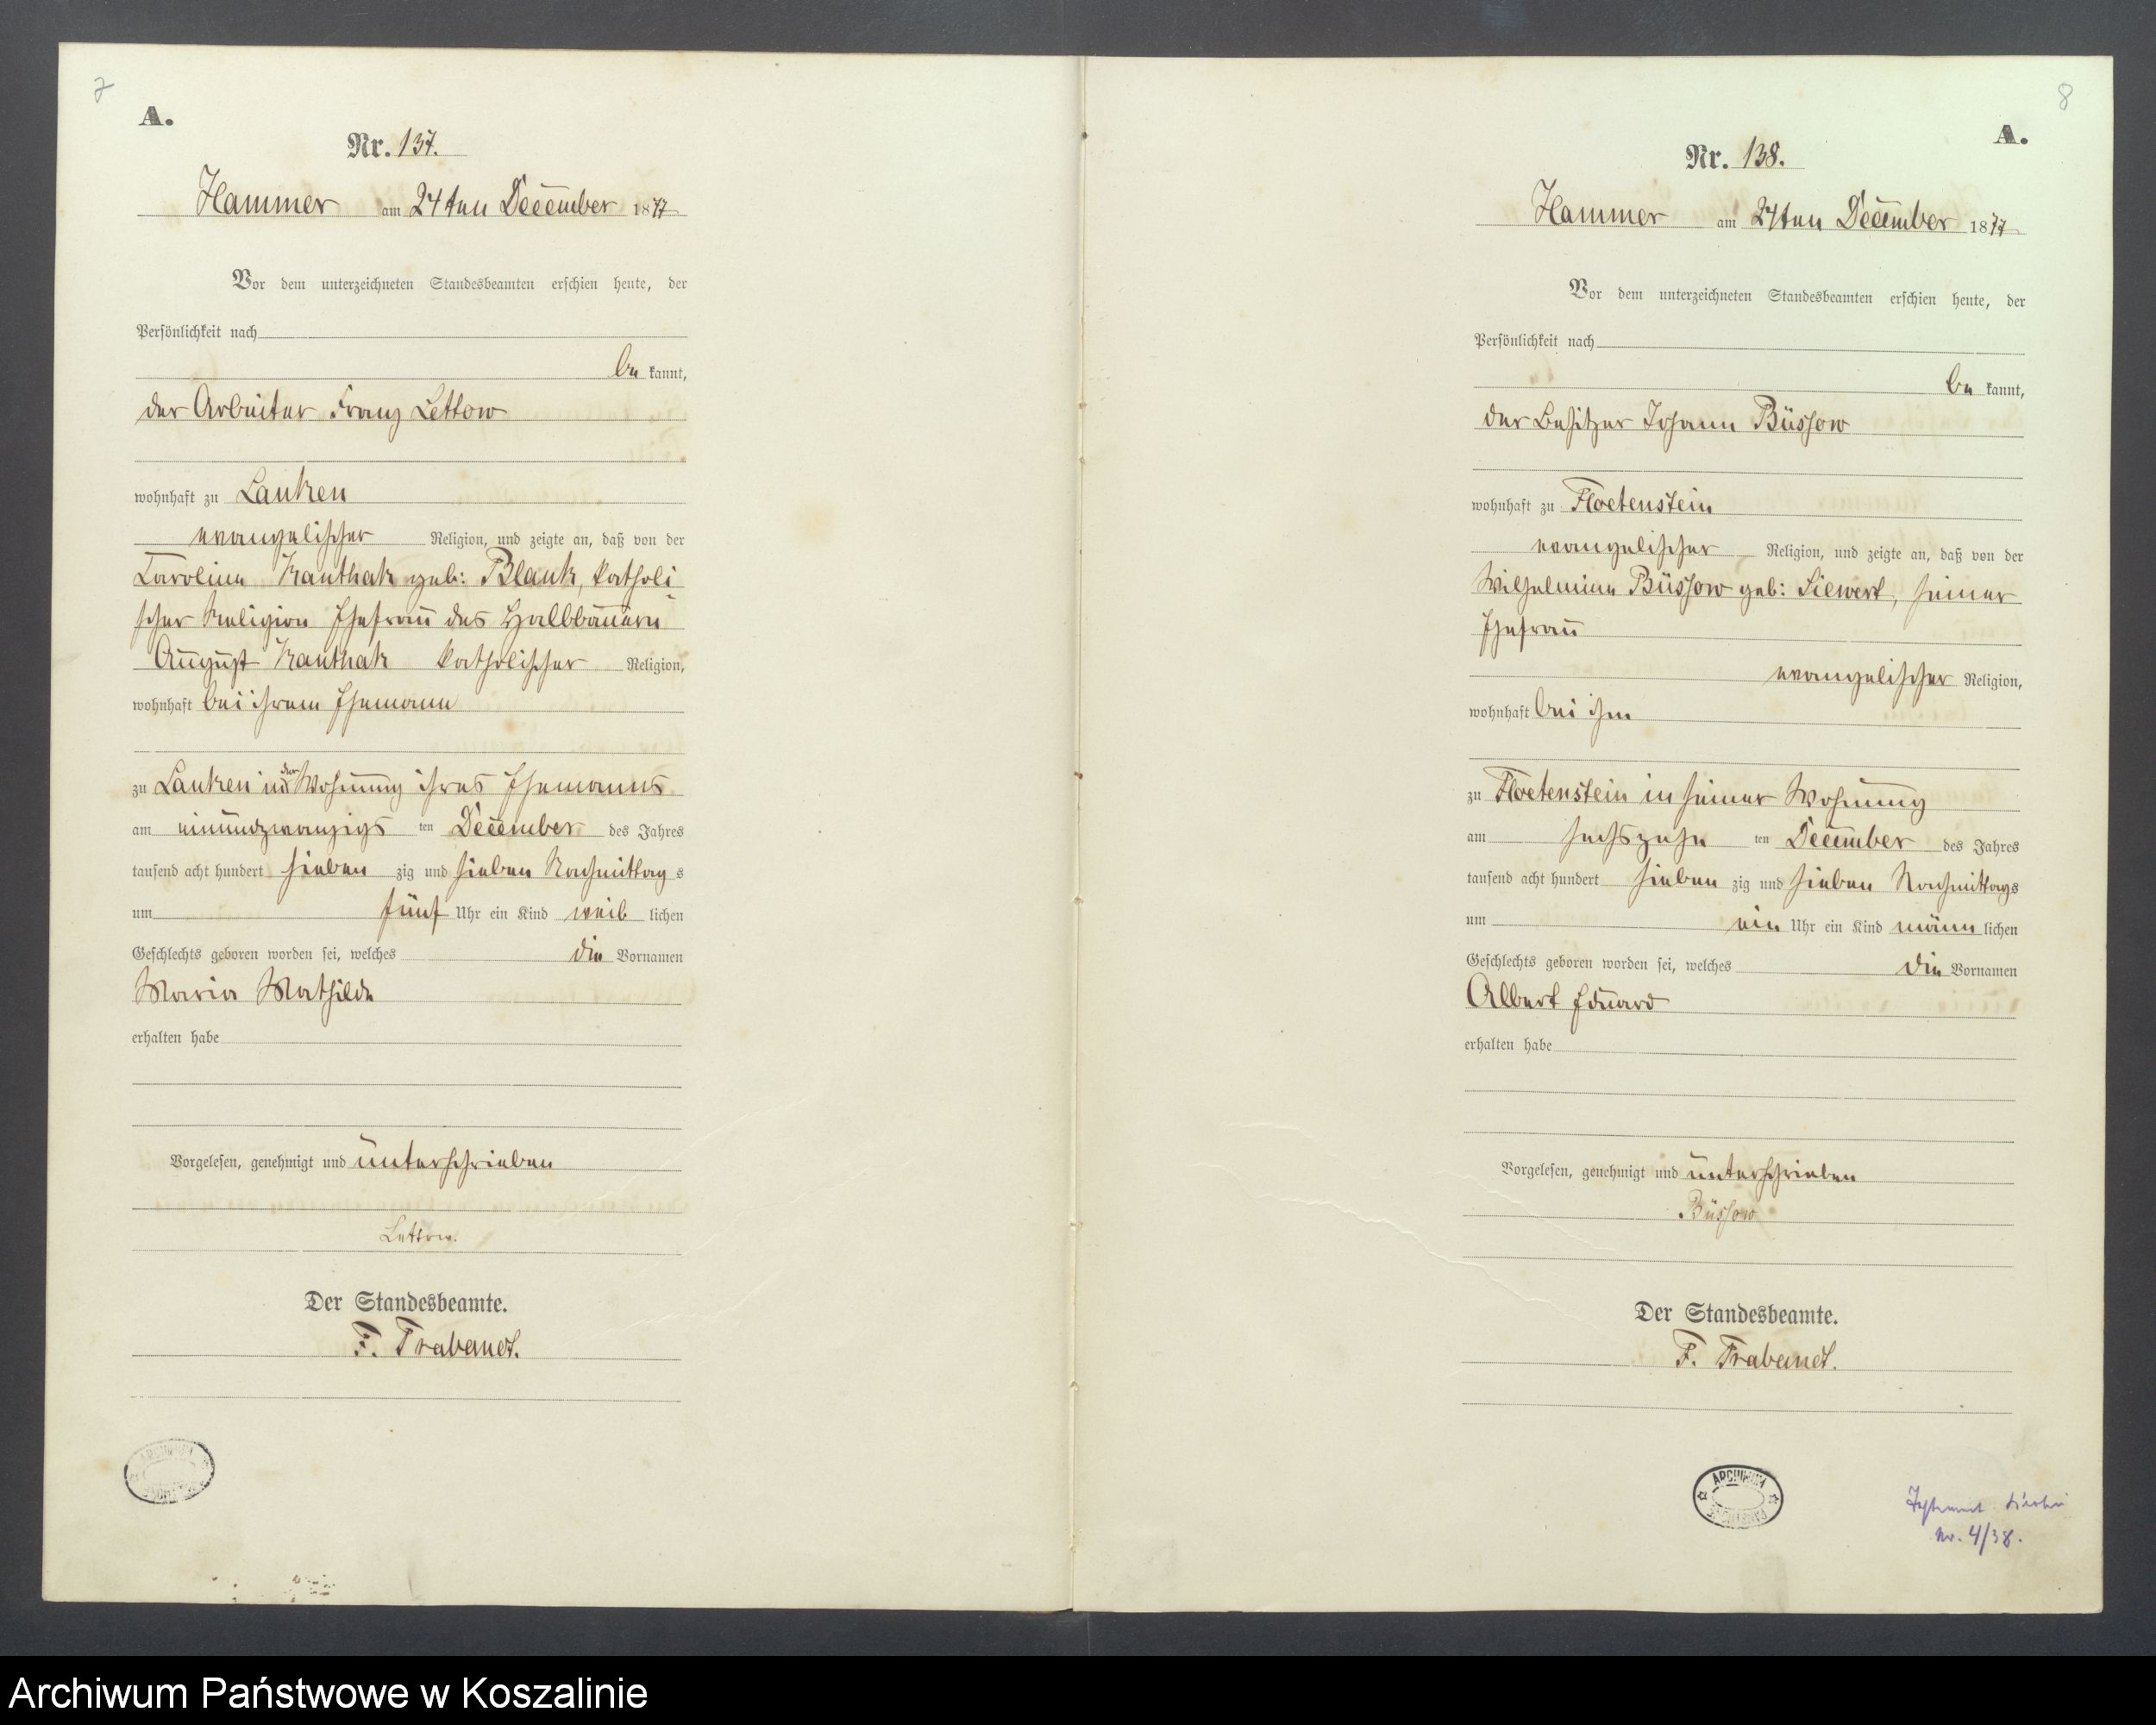 7
A.
Nr. 137.
Hammer am 24ten December 1877
Vor dem unterzeichneten Standesbeamten erschien heute, der
Persönlichkeit nach
be kannt,
der Arbeiter Franz Lettow
wohnhaft zu Lanken
evangelischer Religion, und zeigte an, daß von der
Caroline Kanthak geb: Blank, katholi-
scher Religion Ehefrau des Halbbauern
August Kanthak katholischer Religion,
wohnhaft bei ihrem Ehemann
zu Lanken in der Wohnung ihres Ehemanns
am einundzwanzigs ten December des Jahres
tausend acht hundert sieben zig und sieben Nachmittag s
um fünf Uhr ein Kind weib lichen
Geschlechts geboren worden sei, welches die Vornamen
Maria Mathilde
erhalten habe
Vorgelesen, genehmigt und unterschrieben
Lettow.
Der Standesbeamte.
F. Trabandt.
ARCHIWUM
8
A.
Nr. 138.
Hammer am 24ten December 1877
Vor dem unterzeichneten Standesbeamten erschien heute, der
Persönlichkeit nach
be kannt,
der Besitzer Johann Büssow
wohnhaft zu Floetenstein
evangelischer Religion, und zeigte an, daß von der
Wilhelmine Büssow geb: Siewert, seiner
Ehefrau
evangelischer Religion,
wohnhaft bei ihm
zu Floetenstein in seiner Wohnung
am sechszehn ten December des Jahres
tausend acht hundert sieben zig und sieben Nachmittags
um ein Uhr ein Kind männ lichen
Geschlechts geboren worden sei, welches die Vornamen
Albert Eduard
erhalten habe
Vorgelesen, genehmigt und unterschrieben
Büssow
Der Standesbeamte.
F. Trabandt.
ARCHIWUM
Nr. 4/38.
Archiwum Państwowe w Koszalinie